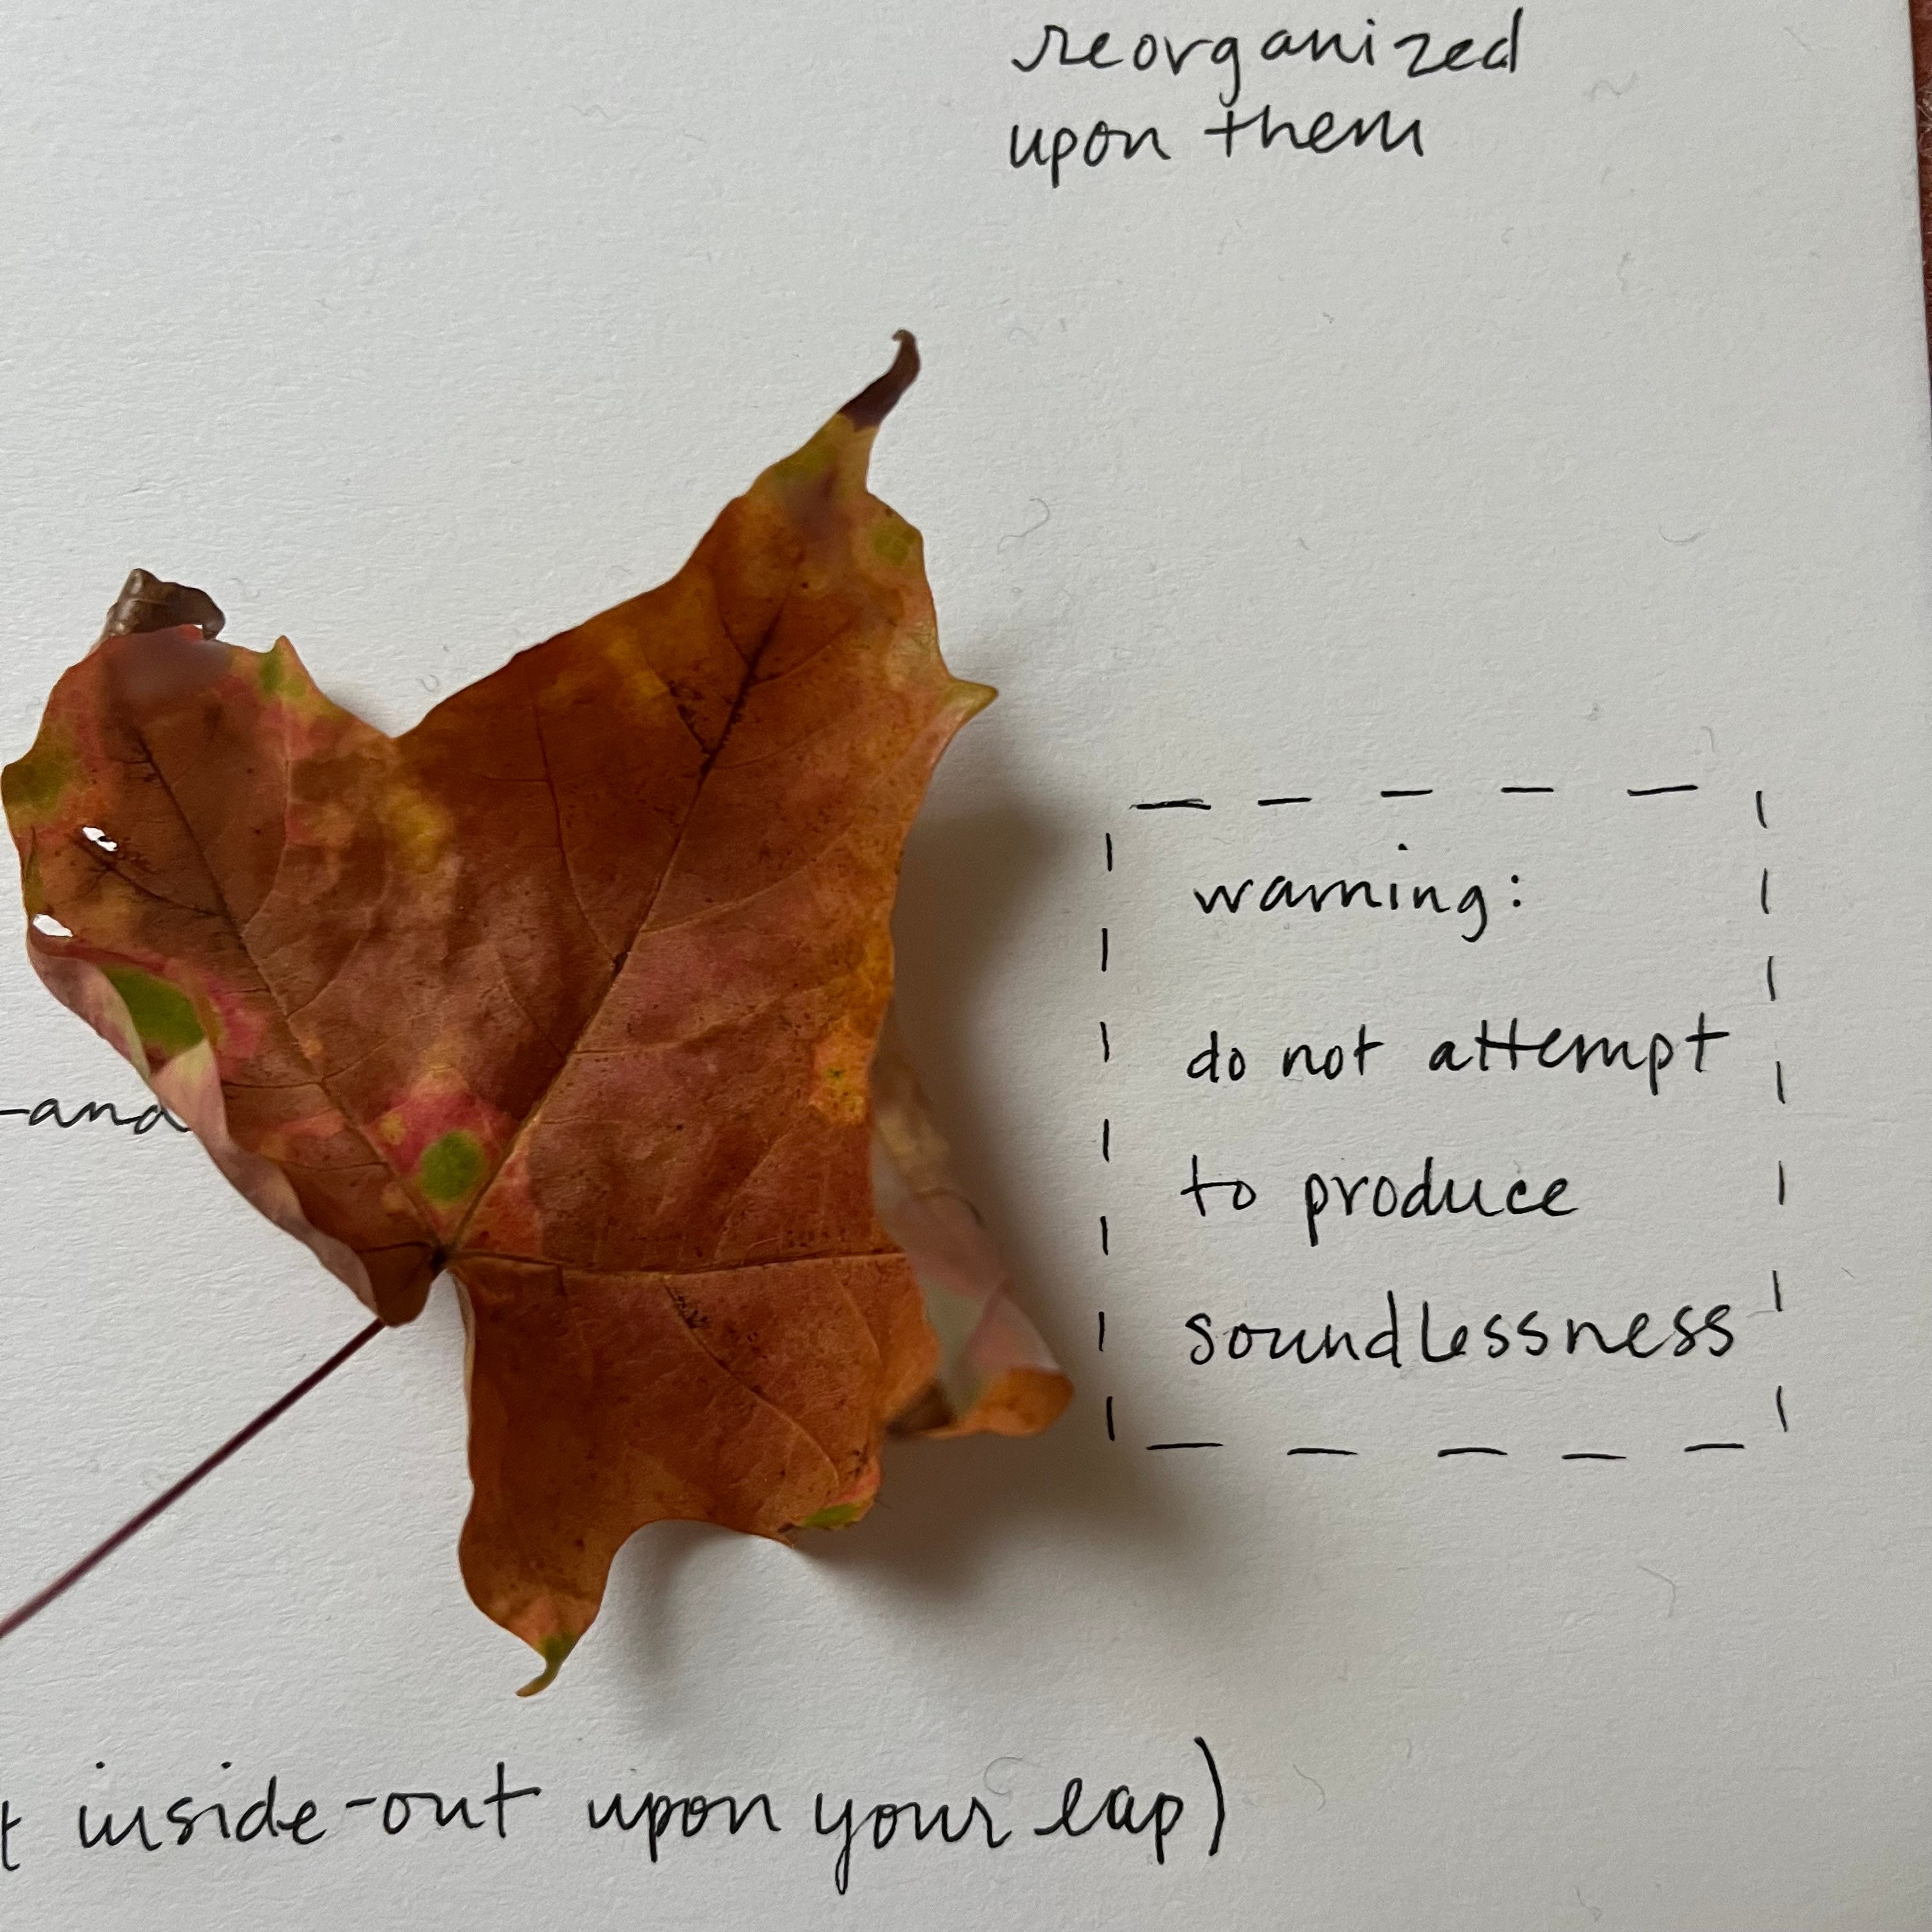 reorganized
upon them
-and
warning:
do not attempt
to produce
soundlessness
t inside-out upon your lap)